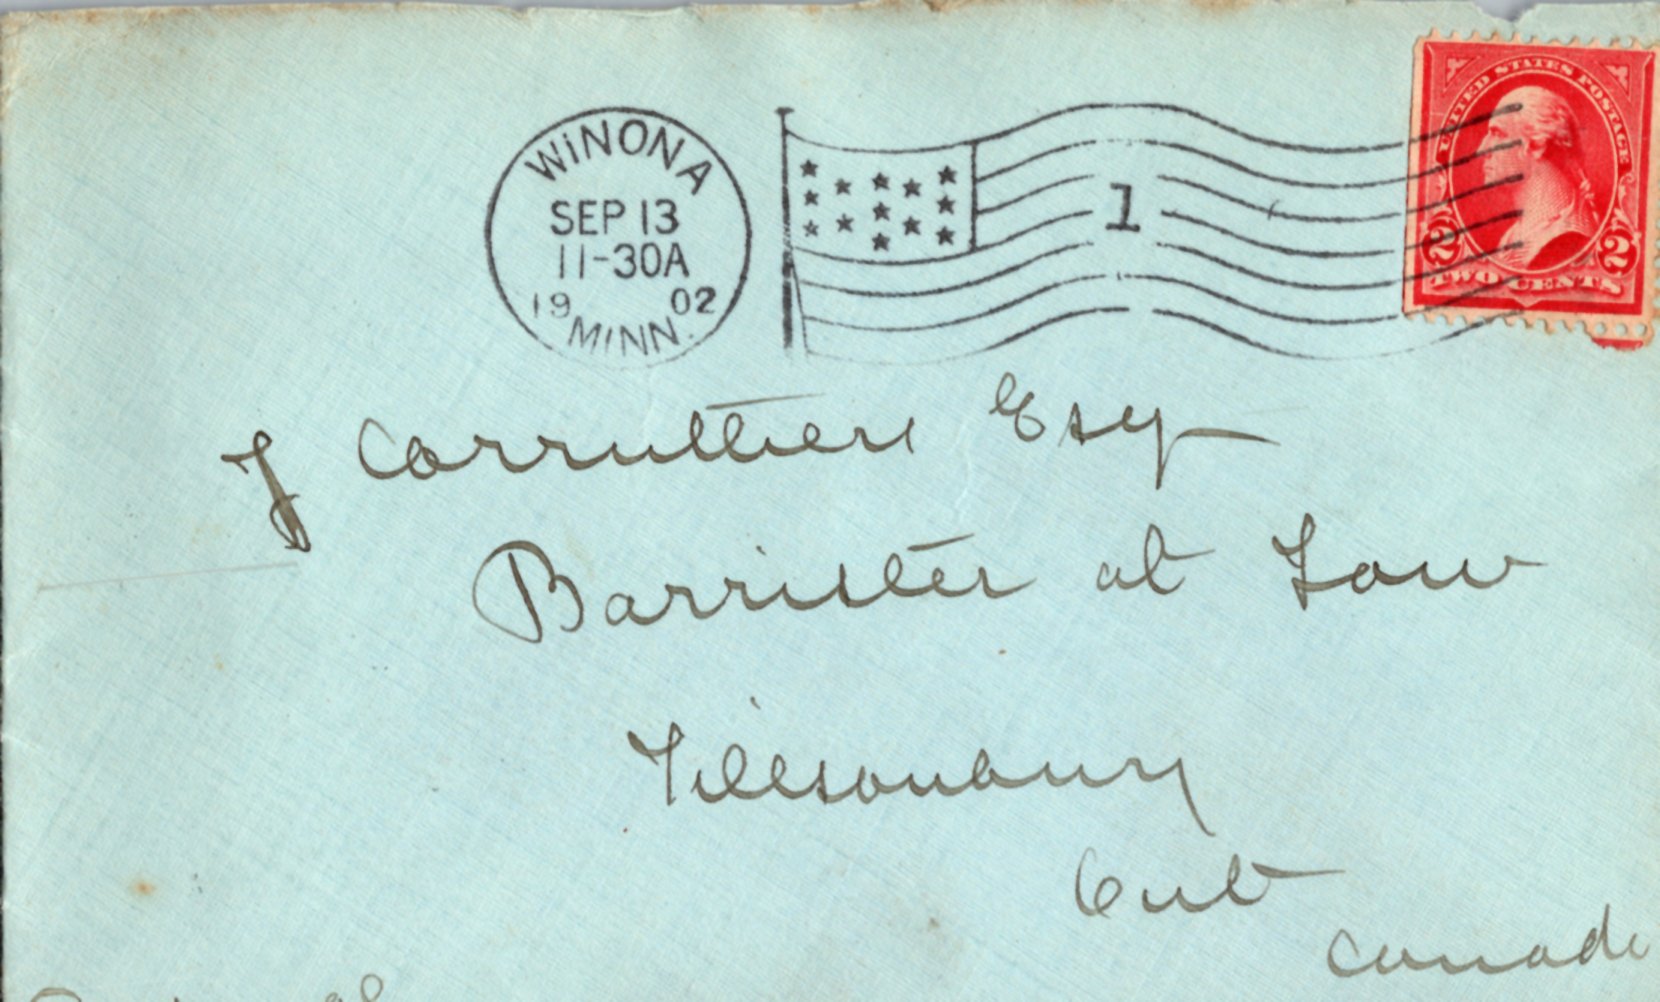 WINONA
SEP 13
11-30A
19 02
MINN.
1
UNITED STATES POSTAGE
2 2
TWO CENTS
J Carruthers Esq
Barrister at Law
Tillsonburg
Ont
Canada